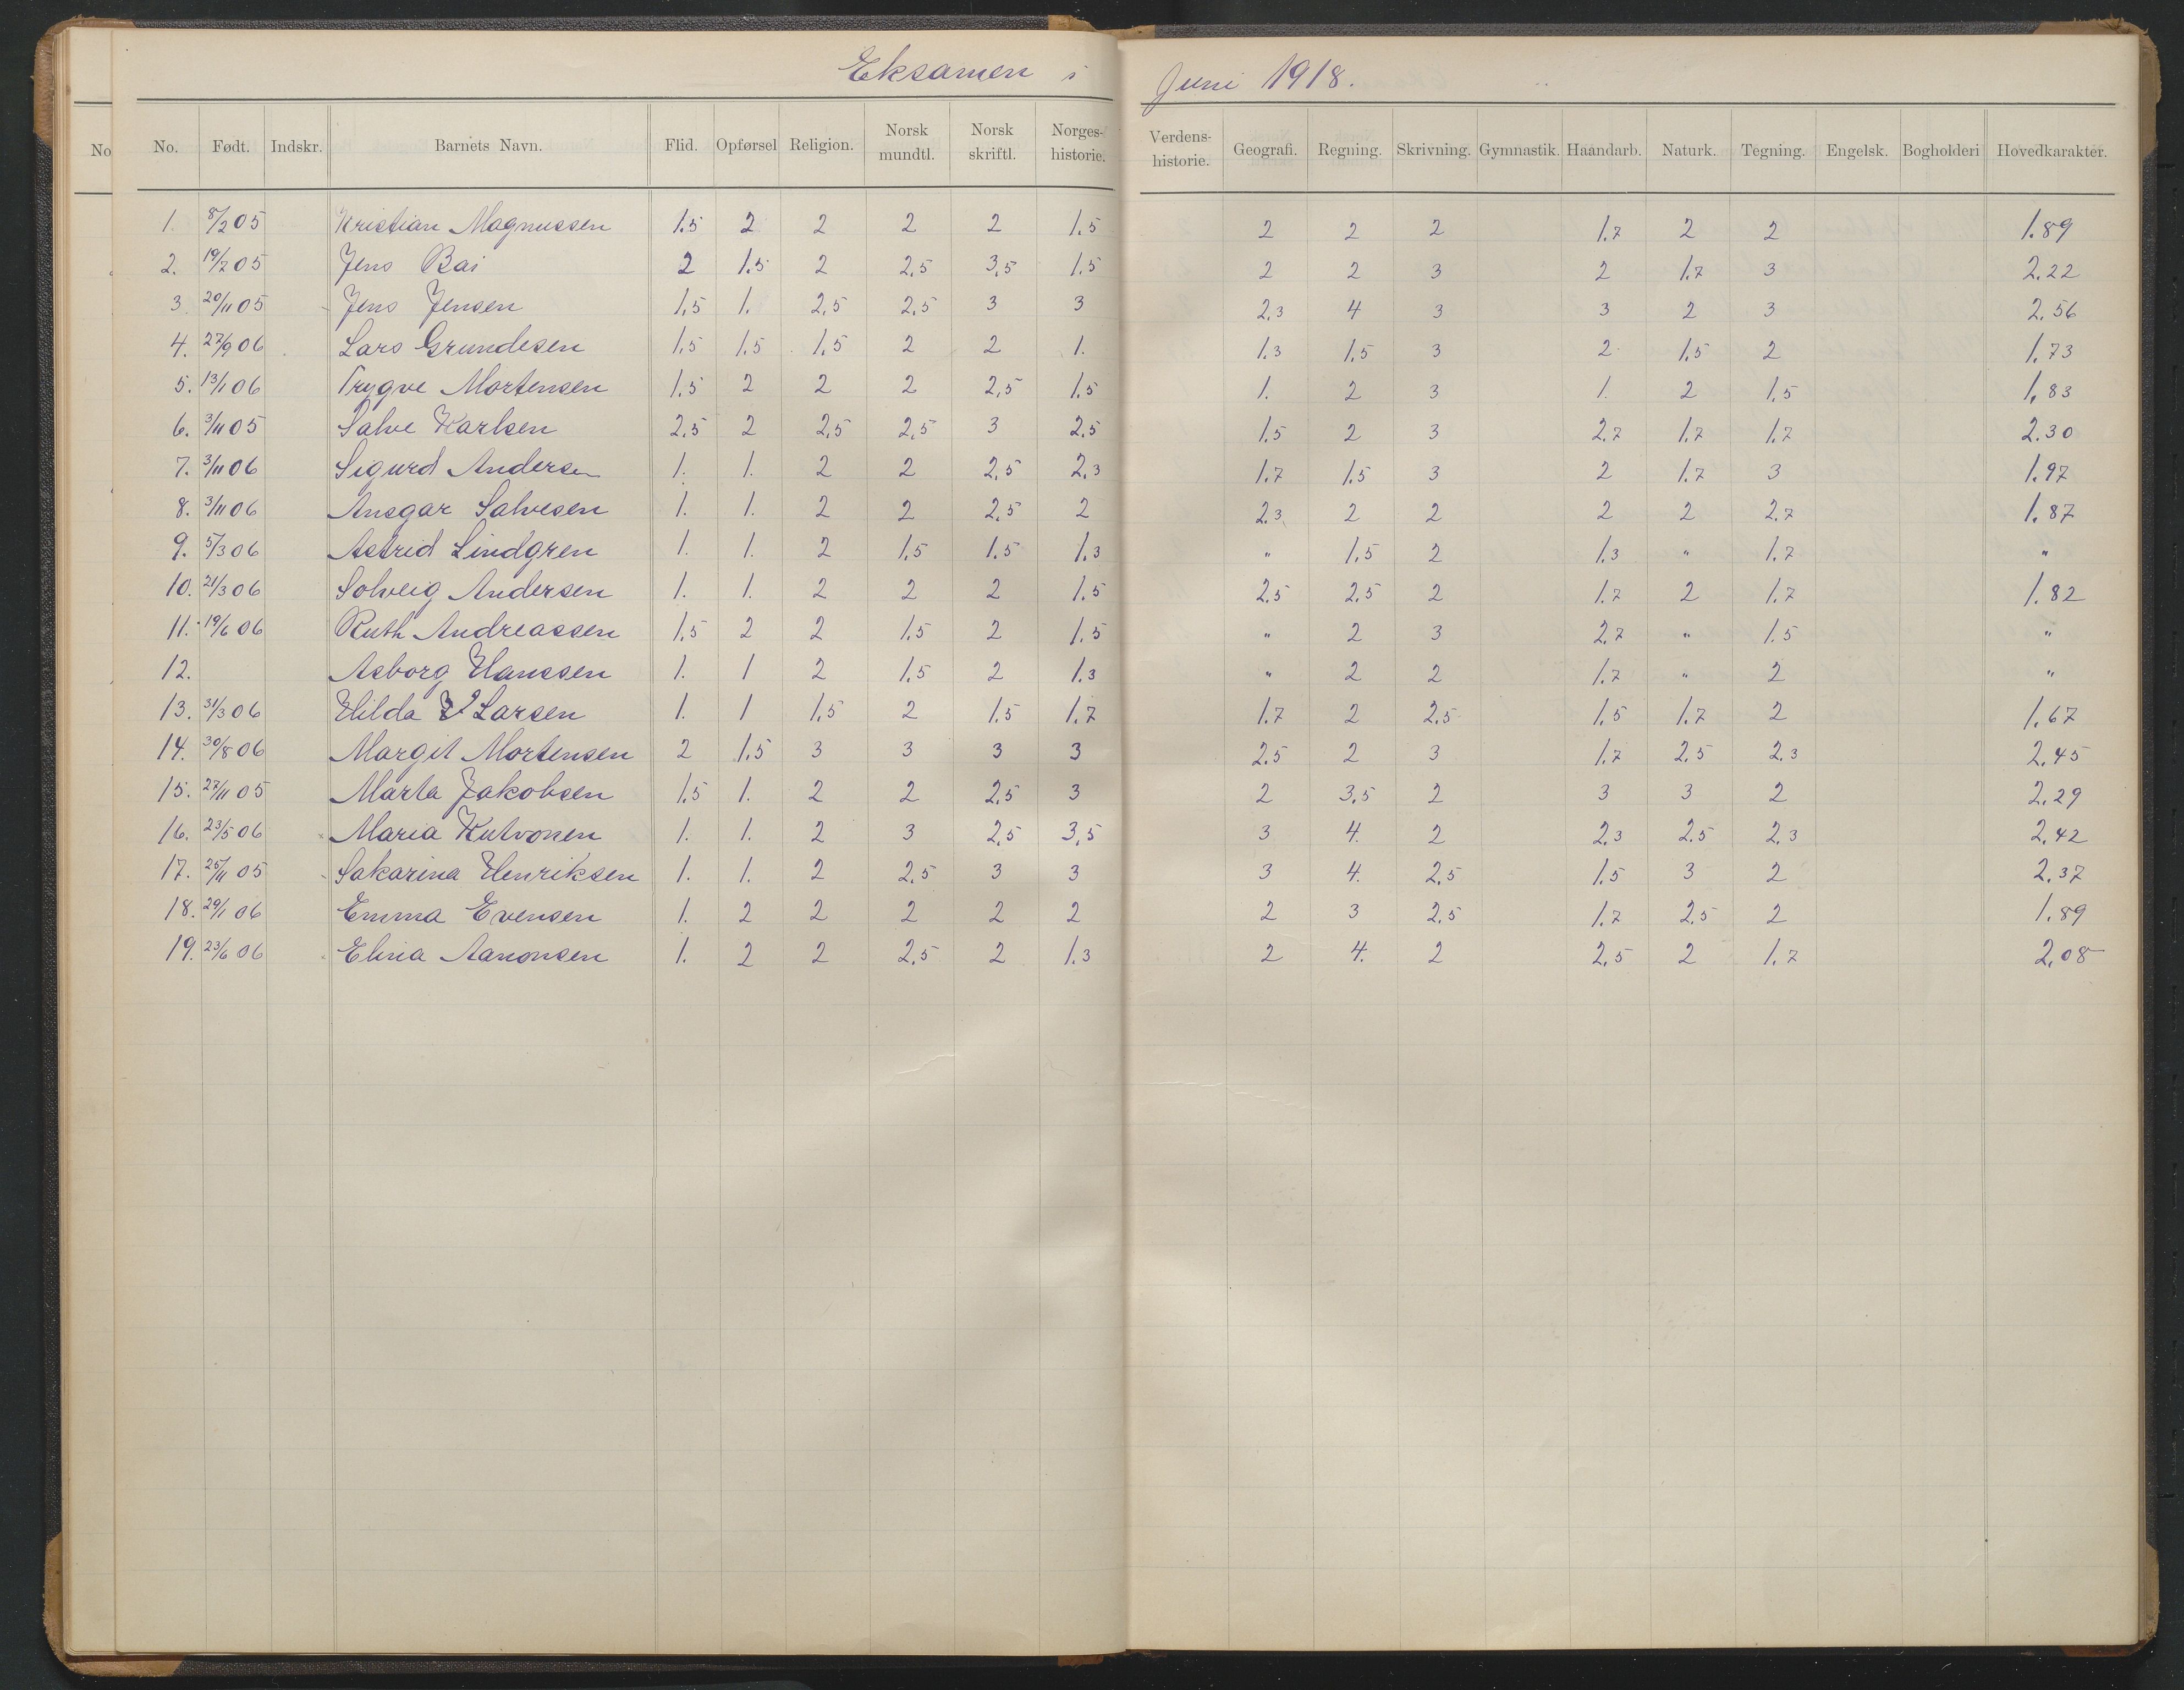 Eksamen i Juni 1918.
No
No. Født. Indskr. Barnets Navn. Flid. Opførsel Religion. Norsk mundtl. Norsk skriftl. Norges-historie. Verdens-historie. Geografi. Regning. Skrivning. Gymnastik. Haandarb. Naturk. Tegning. Engelsk. Bogholderi Hovedkarakter.
1. 8/2 05 Kristian Magnussen 1.5 2 2 2 2 1.5 2 2 2 1.7 2 2 1.89
2. 19/2 05 Jens Bai 2 1.5 2 2,5 3,5 1.5 2 2 3 2 1.7 3 2.22
3. 20/11 05 Jens Jensen 1,5 1. 2,5 2,5 3 3 2,3 4 3 3 2 3 2.56
4. 27/9 06 Lars Grundesen 1,5 1.5 1.5 2 2 1. 1.3 1,5 3 2 1.5 2 1.73
5. 13/1 06 Trygve Mortensen 1.5 2 2 2 2,5 1.5 1. 2 3 1. 2 1,5 1,83
6. 3/11 05 Salve Karlsen 2,5 2 2,5 2,5 3 2,5 1.5 2 3 2.7 1.7 1.7 2.30
7. 3/11 06 Sigurd Andersen 1. 1. 2 2 2,5 2,3 1.7 1.5 3 2 1.7 3 1.97
8. 3/11 06 Ansgar Salvesen 1. 1. 2 2 2,5 2 2.3 2 2 2 2 2.7 1.87
9. 5/3 06 Astrid Lindgren 1. 1. 2 1.5 1.5 1.3 " 1.5 2 1.3 " 1.7 "
10. 21/3 06 Solveig Andersen 1. 1. 2 2 2 1.5 2.5 2.5 2 1.7 2 1.7 1.82
11. 19/6 06 Ruth Andreassen 1,5 2 2 1.5 2 1.5 " 2 3 2,7 " 1.5 "
12. Asborg Hanssen 1. 1 2 1,5 2 1.3 " 2 2 1.7 " 2 "
13. 31/3 06 Hilda Larsen 1. 1 1,5 2 1.5 1.7 1.7 2 2.5 1.5 1.7 2 1.67
14. 30/8 06 Margit Mortensen 2 1.5 3 3 3 3 2.5 2 3 1.7 2.5 2.3 2.45
15. 27/11 05 Marta Jakobsen 1.5 1. 2 2 2,5 3 2 3,5 2 3 3 2 2.29
16. 23/5 06 Maria Kutvonen 1. 1. 2 3 2,5 3,5 3 4. 2 2.3 2.5 2.3 2.42
17. 25/11 05 Sakarina Henriksen 1. 1. 2 2,5 3 3 3 4. 2,5 1.5 3 2 2.37
18. 29/1 06 Emma Evensen 1. 2 2 2 2 2 2 3 2,5 1.7 2.5 2 1.89
19. 23/6 06 Elina Aanonsen 1. 2 2 2,5 2 1.3 2 4. 2 2,5 2 1.7 2,08